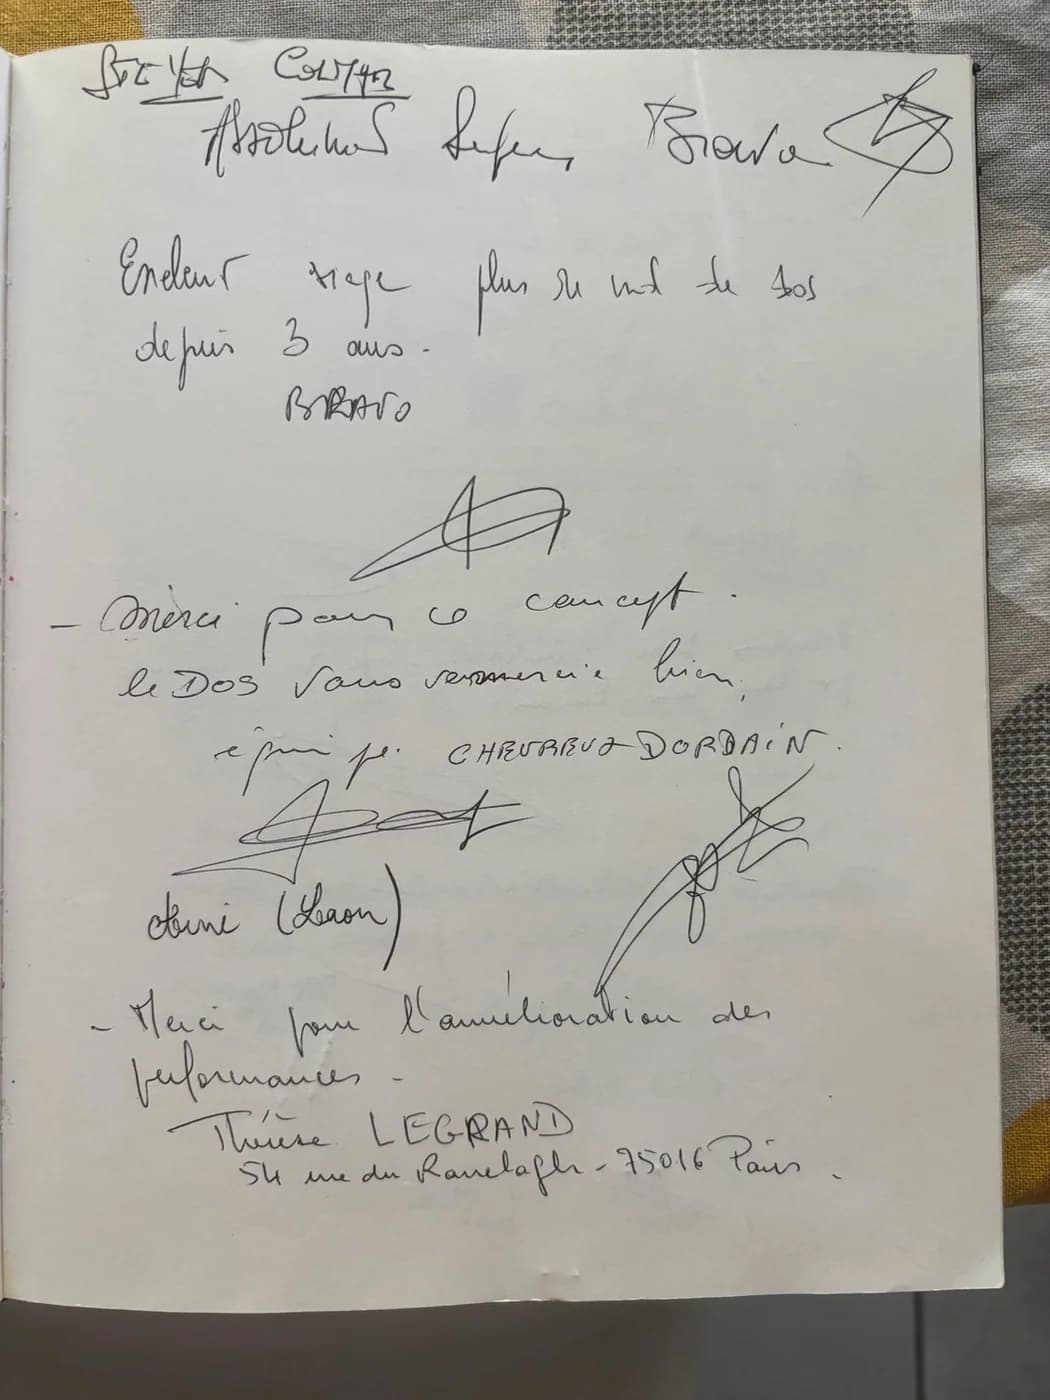 Absolument Super Bravo
Excellent siège plus de mal de dos
depuis 3 ans.
BRAVO
- Merci pour ce concept.
le DOS vous remercie bien,
équipe CHEVREUX-DORDAIN.
(Laon)
- Merci pour l'amélioration des
performances.
Thérèse LEGRAND
54 rue du Ranelagh - 75016 Paris.